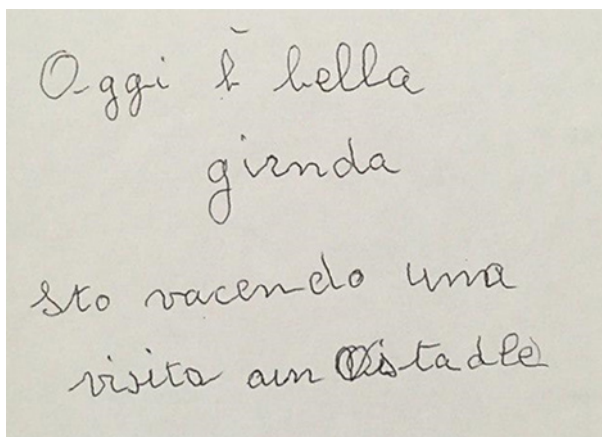 Oggi è bella
girnda
sto vacendo una
visita aun